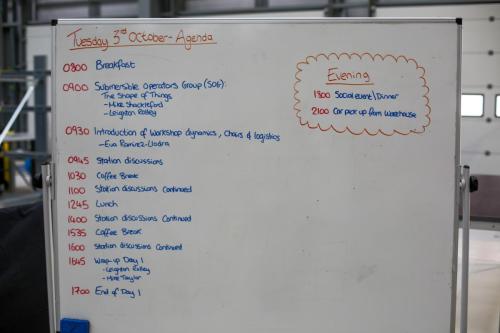 Tuesday 3rd October - Agenda
0800 Breakfast
0900 Submersible Operators Group (SOG):
The Shape of Things
- Mike Shackleford
- Leighton Rolley
0930 Introduction of Workshop dynamics, Chairs & logistics
- Eva Ramirez-Llodra
0945 Station discussions
1030 Coffee Break
1100 Station discussions Continued
1245 Lunch
1400 Station discussions Continued
1535 Coffee Break
1600 Station discussions Continued
1645 Wrap-up Day 1
- Leighton Rolley
- Mike Taylor
1700 End of Day 1
Evening
1800 Social event \ Dinner
2100 Car pick up from Warehouse